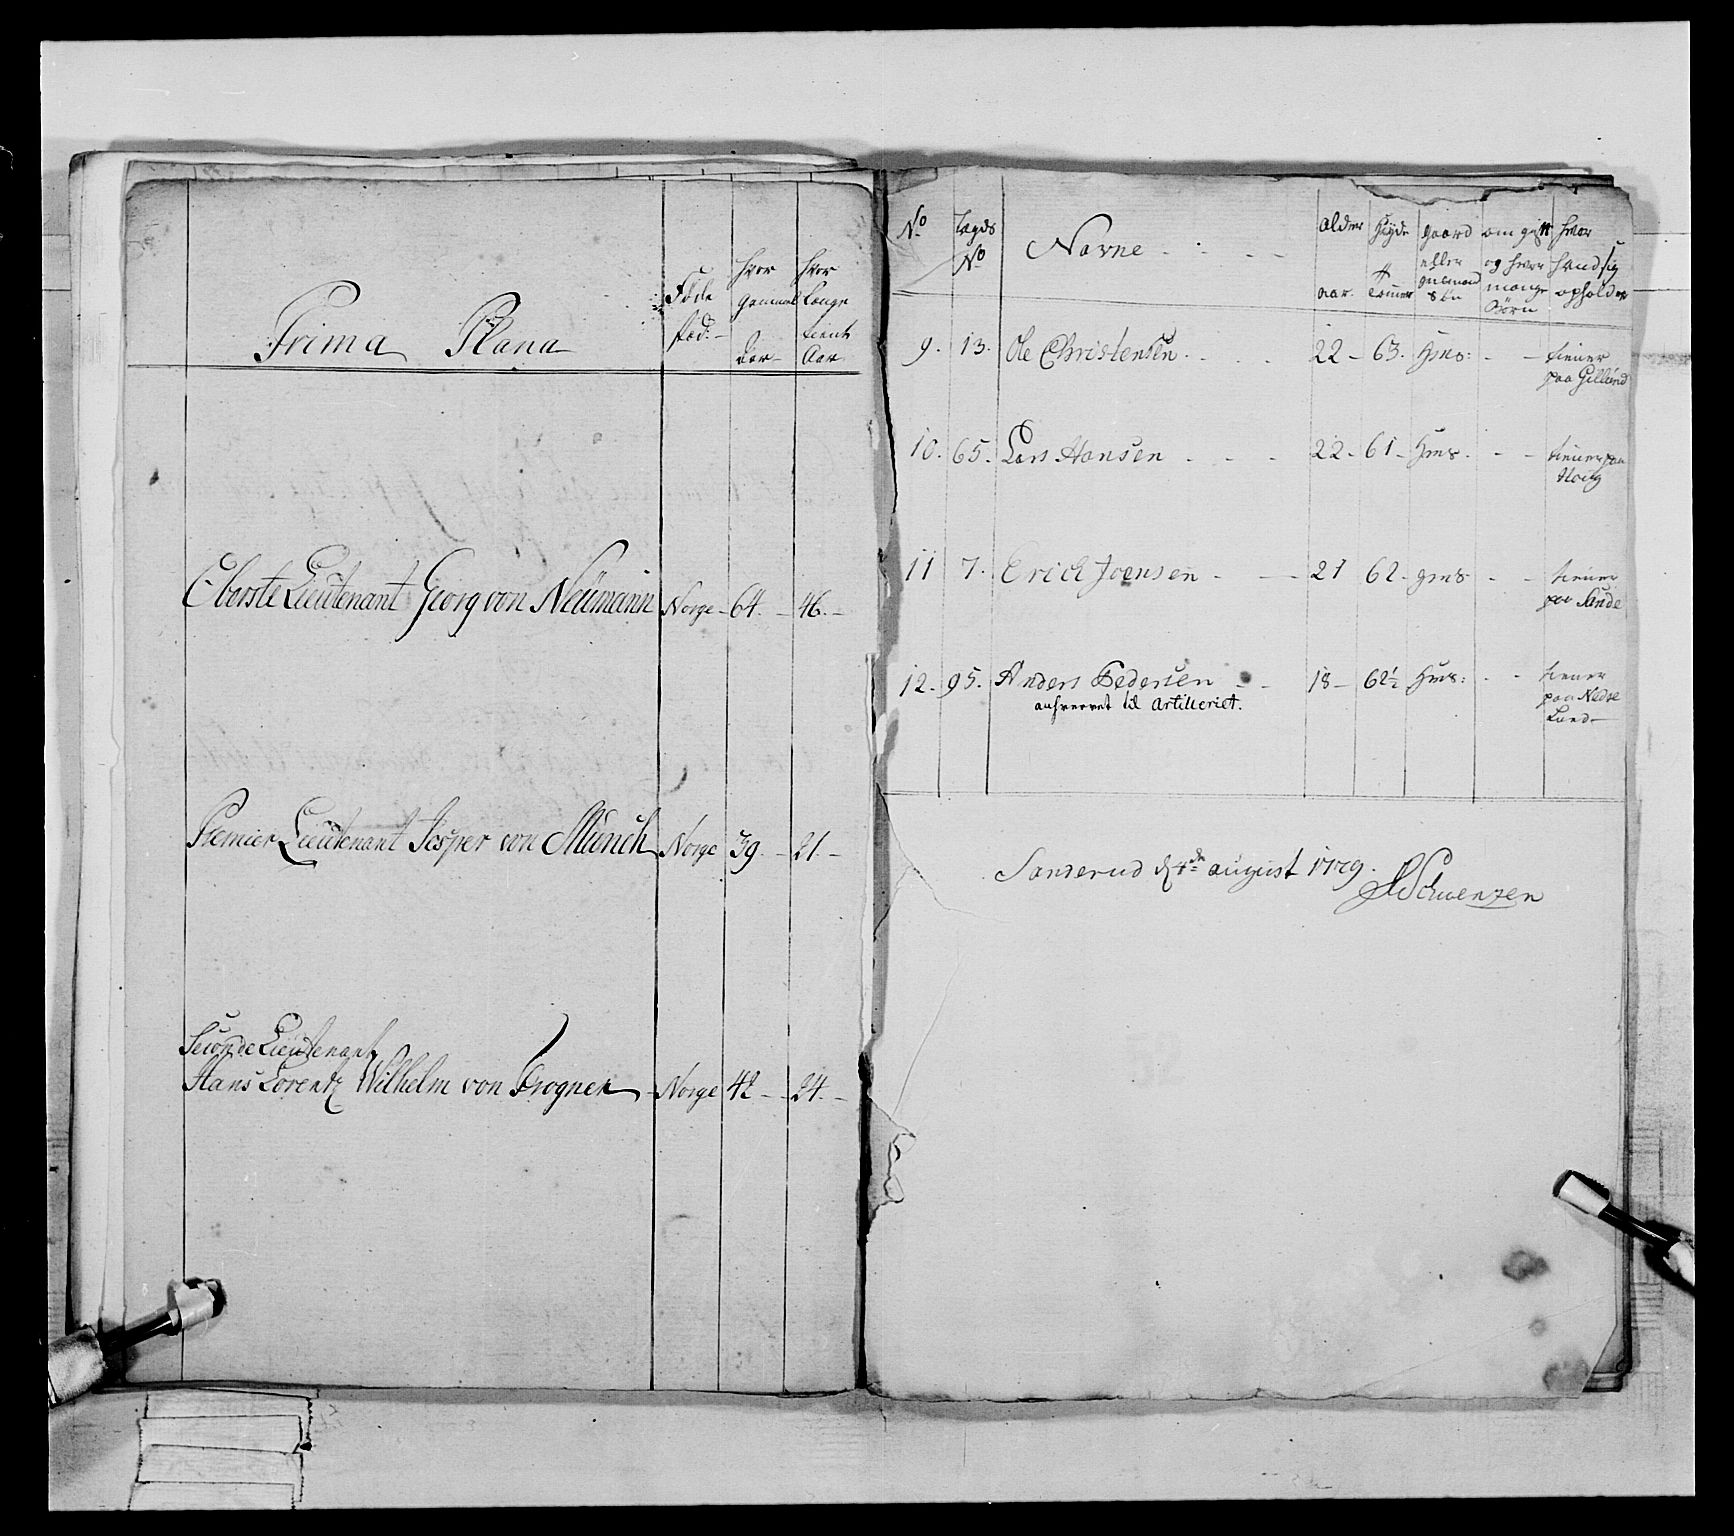 Prima Plana
Føde
Stæd.
hvor
gammel
Aar
hvor
Længe
tient
Aar
Oberste Lieutenant Georg von Neümann Norge - 64. - 46. -
Premier Lieutenant Jesper von Münch Norge 39. - 21. -
Seconde Lieutenant
Hans Lorentz Wilhelm von Frogner - Norge 42 - - 24. -
No
Lægds
No
Navne
alder
aar.
Høyde
Tommer
gaard
eller
huusmand
søn
om gift
og hvor
mange
Børn
hvor
hand sig
opholder
9. 13. Ole Christensen. 22 - 63. Hms: - - tiener
paa Gillund
10. 65. Lars Hansen 22 - 61 - Hms. - - tiener paa
11 7. Erich Joensen - 21 62 - gms - - tiener
paa Sande
12. 95. Anders Pedersen 18 - 62½ Hms: - - tiener
paa Nedre
Lund -
anhvervet til Artilleriet.
Sanderud d 4de august 1779.
Schwenzen